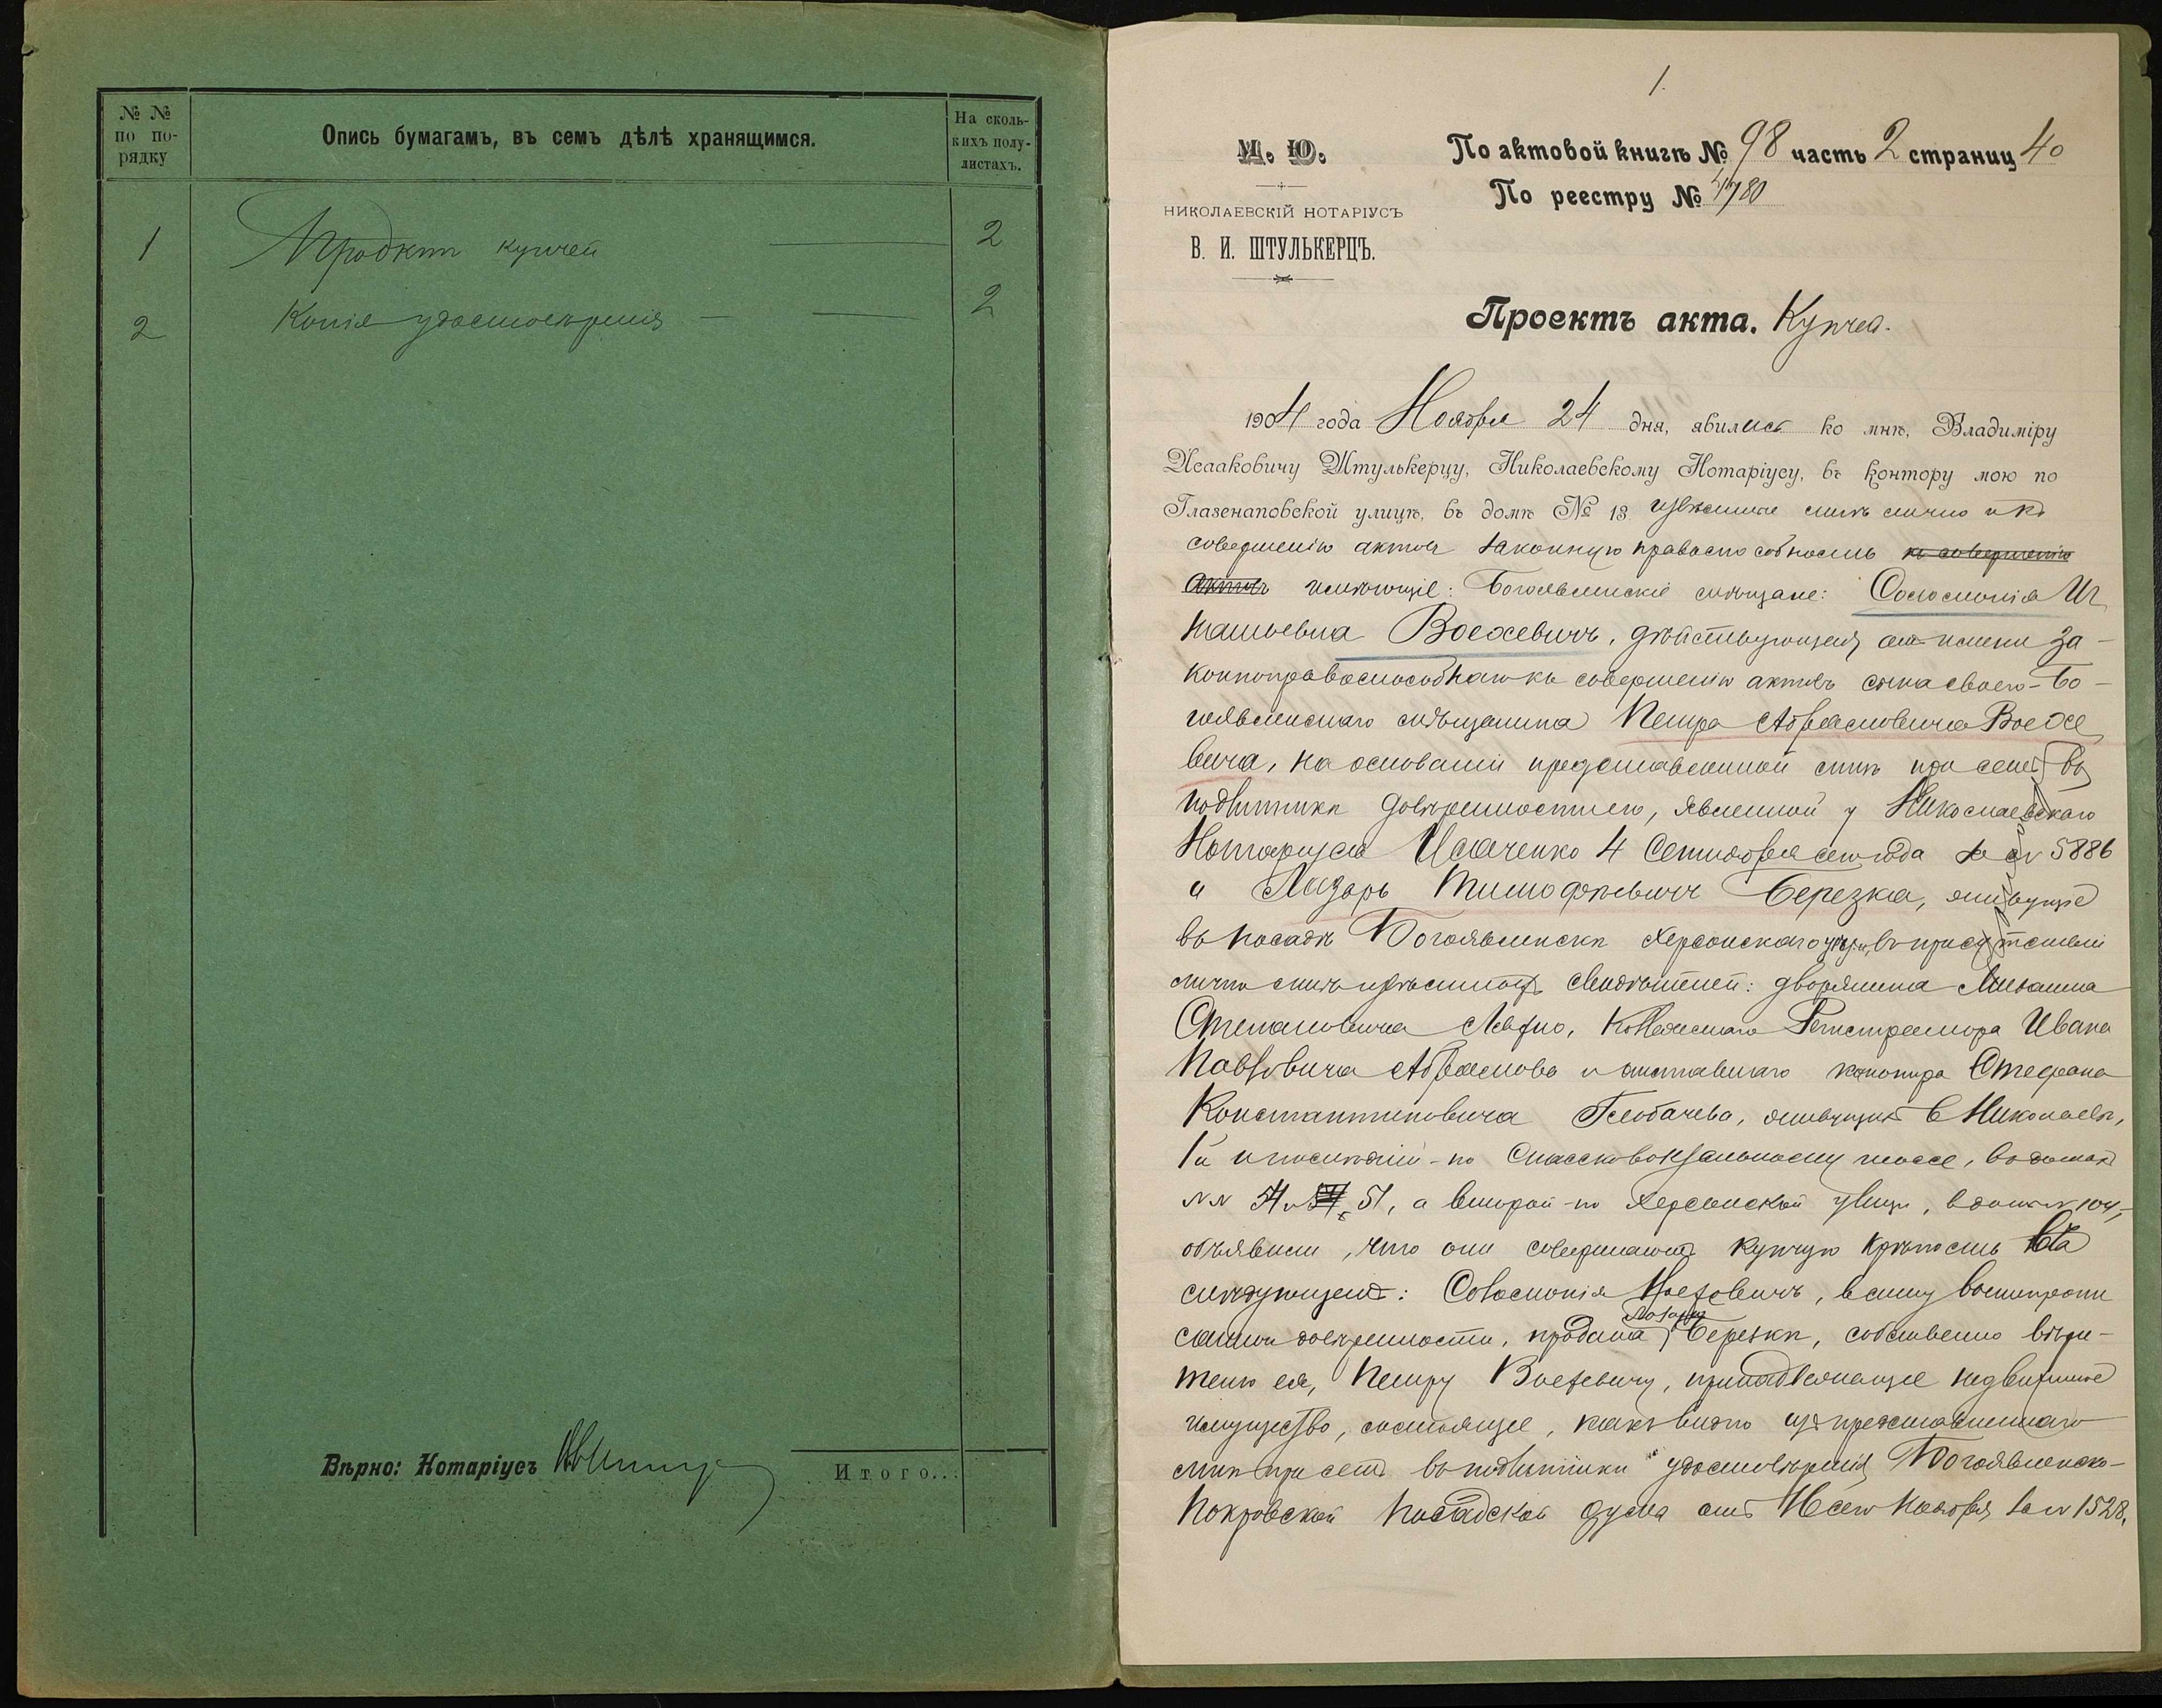 № №
по по-
рядку
Опись бумагамъ, въ семъ дѣлѣ хранящимся.
На сколь-
кихъ полу-
листахъ.
1 купчей 2
2 Копія удостовѣренія 2
Вѣрно: Нотаріусъ
Итого...
1.
М. Ю.
НИКОЛАЕВСКІЙ НОТАРІУСЪ
В. И. ШТУЛЬКЕРЦЪ.
По актовой книгѣ № 98 часть 2 страниц 40
По реестру № 1780
Проектъ акта. Купчая.
1904 года Ноября 24 дня, явились ко мнѣ, Владиміру
Исааковичу Штулькерцу, Николаевскому Нотаріусу, въ контору мою по
Глазенаповской улицѣ, въ домѣ № 13 извѣстные мнѣ лично и къ
совершенію актовъ законную правоспособность къ совершенію
актовъ имѣющіе: Богоявленскіе мѣщане: Соломонія Иг
натьевна Воежевичъ, дѣйствующая отъ имени за-
конноправоспособнаго къ совершенію актовъ сына своего-Бо-
гоявленскаго мѣщанина Петра Абрамовича Воеже
вича, на основаніи представленной мнѣ при семъ въ
подлинникѣ довѣренности его, явленной у Николаевскаго
Нотаріуса Исаченко 4 Сентября сего года за № 5886
и Лазарь Тимофѣевичъ Березка, живущіе
въ посадѣ Богоявленскѣ Херсонскаго уѣзда, въ присутствіи
лично мнѣ извѣстныхъ свидѣтелей: дворянина Михаила
Степановича, Коллежскаго Регистратора Ивана
Павловича Абрамова и отставнаго канонира Стефана
Константиновича Глобачева, живущихъ въ Николаевѣ,
1й и послѣдній-по Спассковокзальному шоссе, въ домахъ
№№ 54 и 51, а второй-по Херсонской улицѣ, въ домѣ № 104,-
объявили, что они совершаютъ купчую крѣпость
слѣдующемъ: Соломонія Воежевичъ, въ силу вышепропи
санной довѣренности, продала Лазарю Березкѣ, собственно вѣри-
телю ея, Петру Воежевичу, принадлежащее недвижимое
имущество, состоящее, какъ видно изъ представленнаго
мнѣ при семъ въ подлинникѣ удостовѣренія Богоявленско-
Покровской Посадской Думы отъ сего Ноября за № 1528,